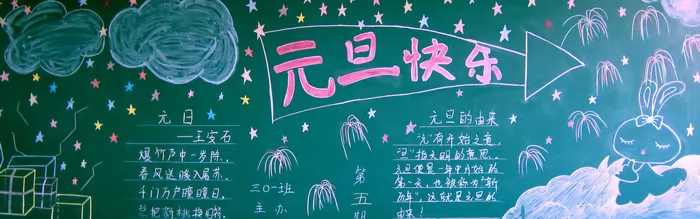 元旦快乐
元日
——王安石
爆竹声中一岁除,
春风送暖入屠苏。
千门万户曈曈日,
总把新桃换旧符。
三〇一班
主办
第五期
元旦的由来
"元"有开始之意,
"旦"指天明的意思。
元旦便是一年中开始的
第一天,也被称为"新
历年",这就是元旦的
由来!